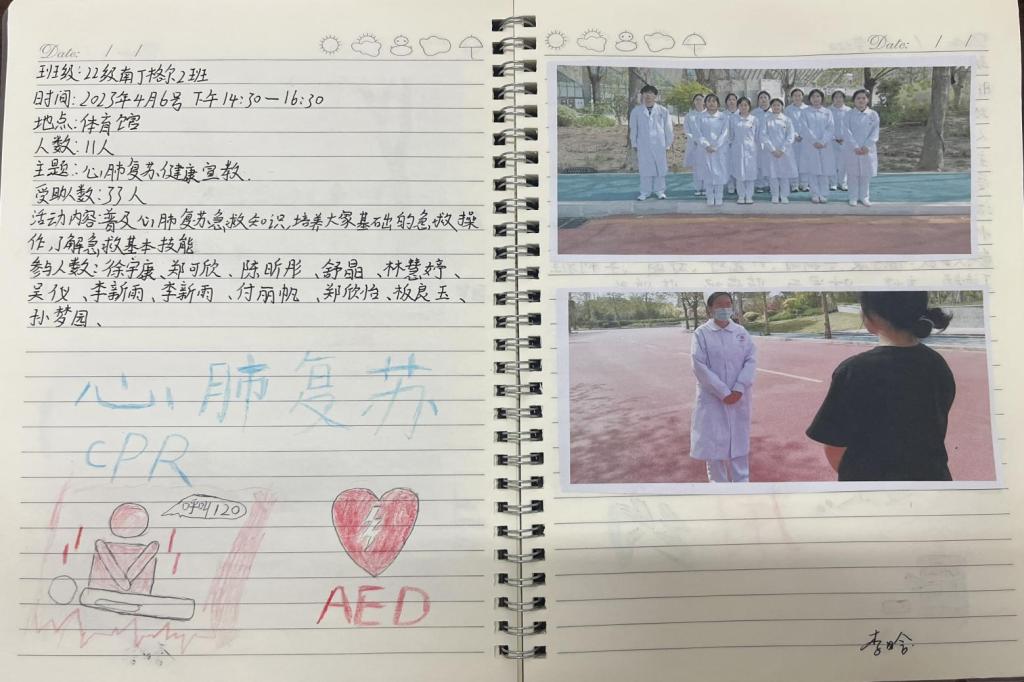 Date: / /
班级:22级南丁格尔2班
时间:2023年4月6号 下午14:30—16:30
地点:体育馆
人数:11人
主题:心肺复苏健康宣教.
受助人数:33人
活动内容:普及心肺复苏急救知识,培养大家基础的急救操
作,了解急救基本技能
参与人数:徐宇康、郑可欣、陈昕彤、舒晶、林慧婷、
吴仪、李新雨、李新雨、付丽帆、郑欣怡、板良玉、
孙梦园、
心肺复苏
CPR
呼叫120
AED
Date: / /
李晗